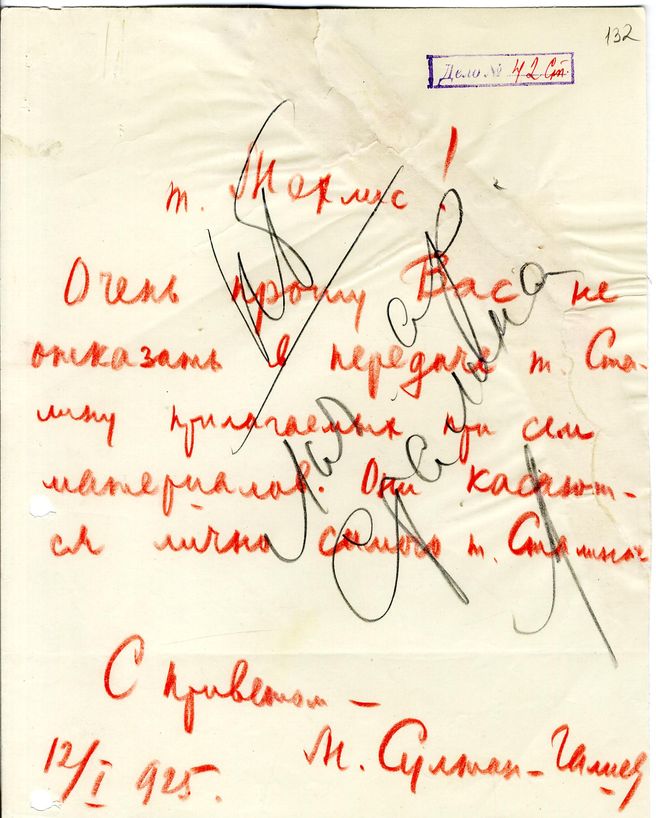 132
Дело № 42 Ст
т. Мехлис!
Очень прошу Вас не
отказать в передаче т. Ста-
лину прилагаемых при сем
материалов. Они касают-
ся лично самого т. Сталина.
С приветом –
М. Султан-Галиев
12/I 925.